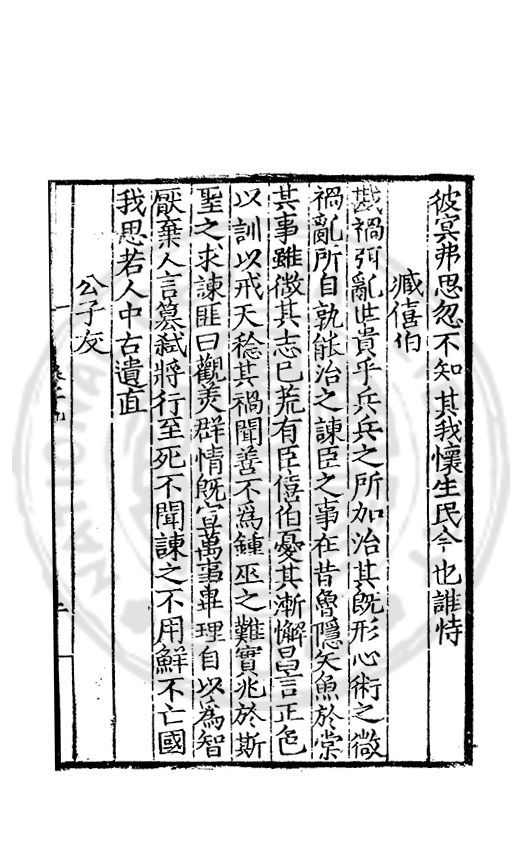 彼冥弗思忽不知其我懷生民今也誰恃
臧僖伯
戡禍弭亂世貴乎兵兵之所加治其旣形心術之微
禍亂所自孰能治之諫臣之事在昔魯隱矢魚於棠
其事雖微其志已荒有臣僖伯憂其漸懈昌言正色
以訓以戒天稔其禍聞善不爲鍾巫之難實兆於斯
聖之求諫匪曰觀美群情旣宣萬事畢理自以爲智
厭棄人言簒弑將行至死不聞諫之不用鮮不亡國
我思若人中古遺直
公子友